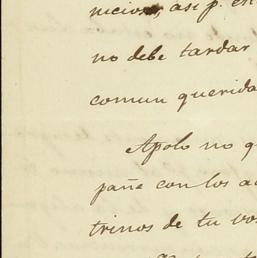 nicios, asi p. en
no debe tardar
comun querida
Apolo no q
pañe con los a
trinos de tu vo